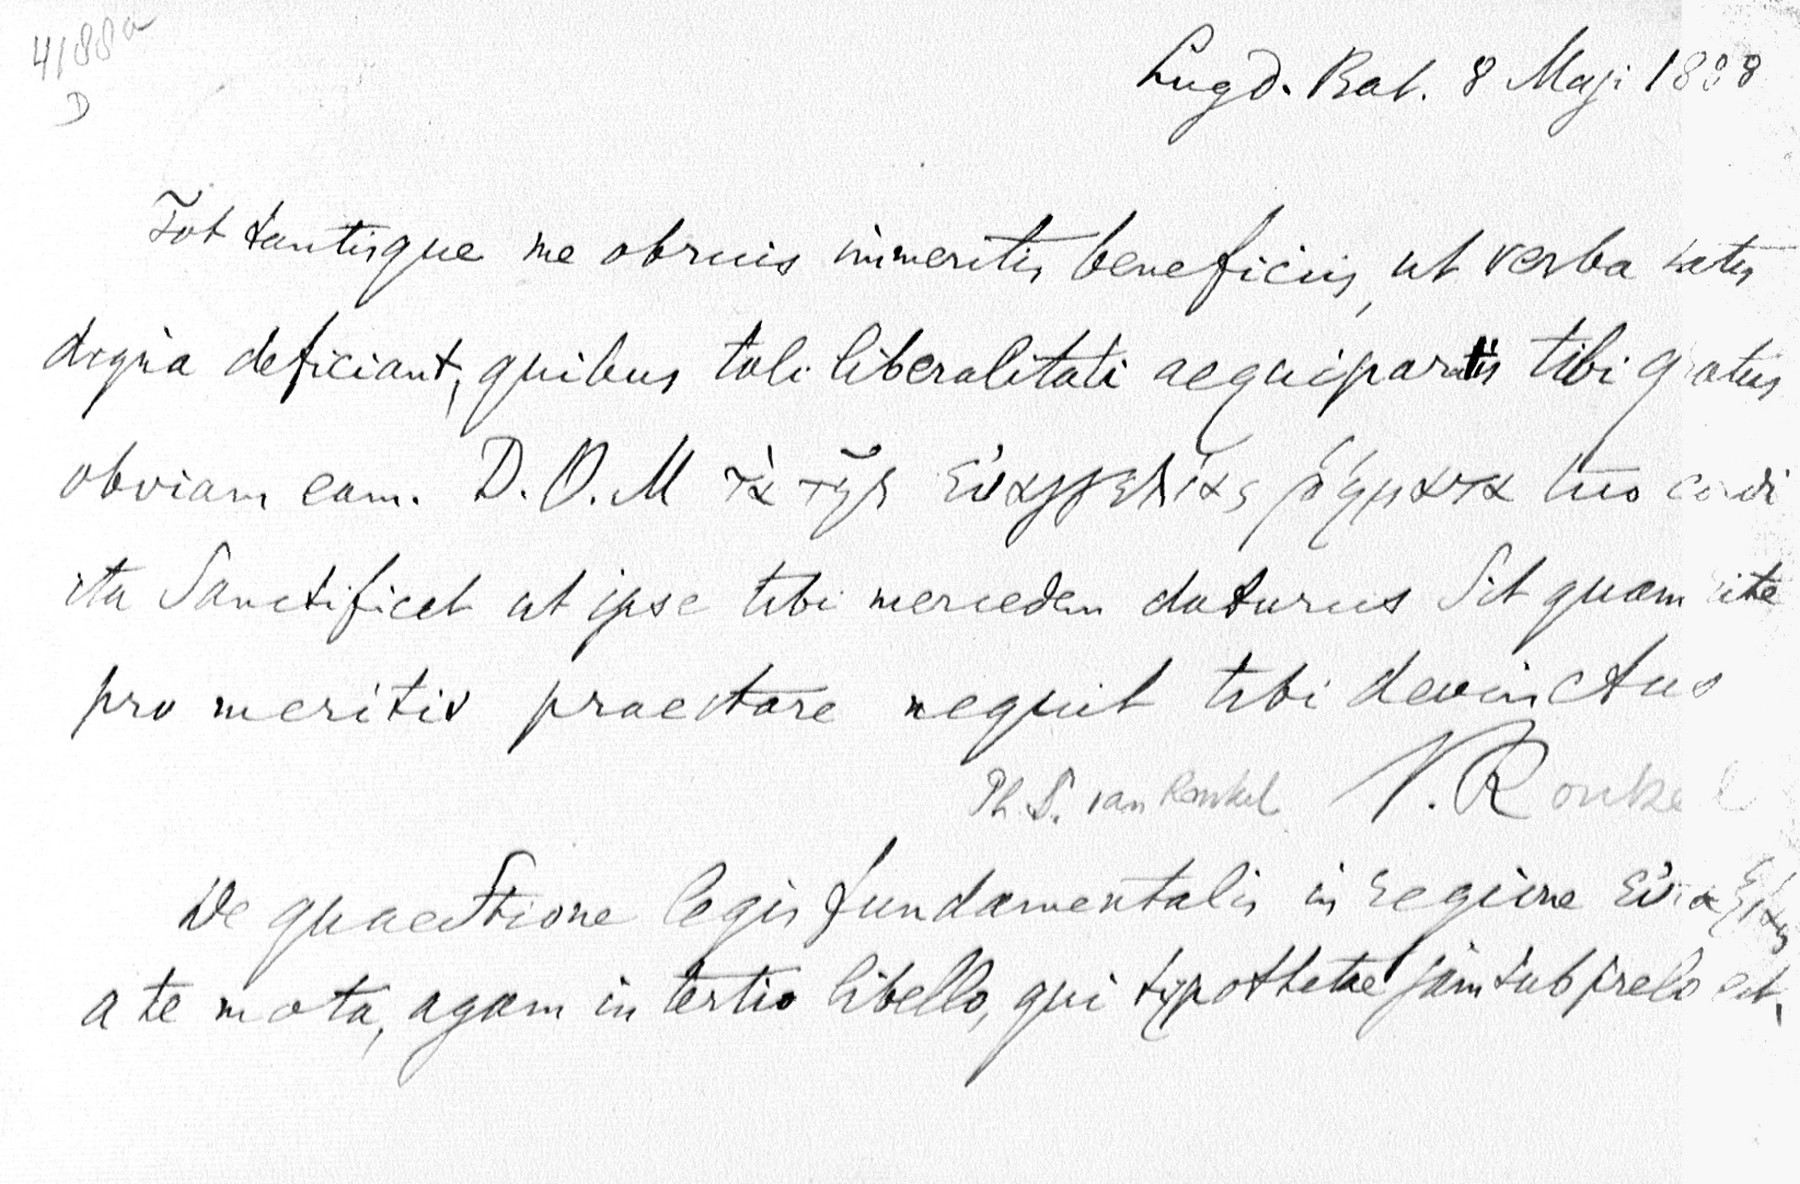 4188a
D
Lugd. Bat. 8 Maji 1888
Tot tantisque me obruis immeritis beneficiis, ut verba satis
digna deficiant, quibus tali liberalitati aequiparatis tibi gratus
obviam eam. D.O.M τὰ τῆς εὐαγγελίας ῥήματα tuo cordi
ita Sanctificet ut ipse tibi mercedem daturus Sit quam rite
pro meritis praestare nequit tibi devinctus
Ph. S. van Ronkel V. Ronkel
De quaestione legis fundamentalis in regione
a te mota, agam in tertio libello, qui typothetae jam sub prelo est.